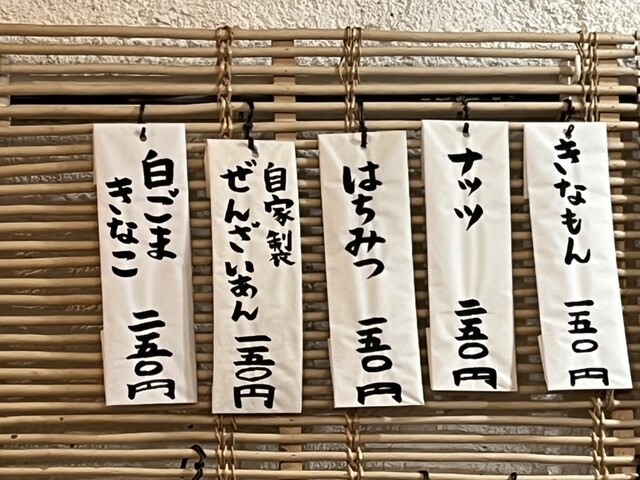 きなもん
一五〇円
ナッツ
二五〇円
はちみつ
一五〇円
自家製
ぜんざいあん
一五〇円
白ごま
きなこ
二五〇円